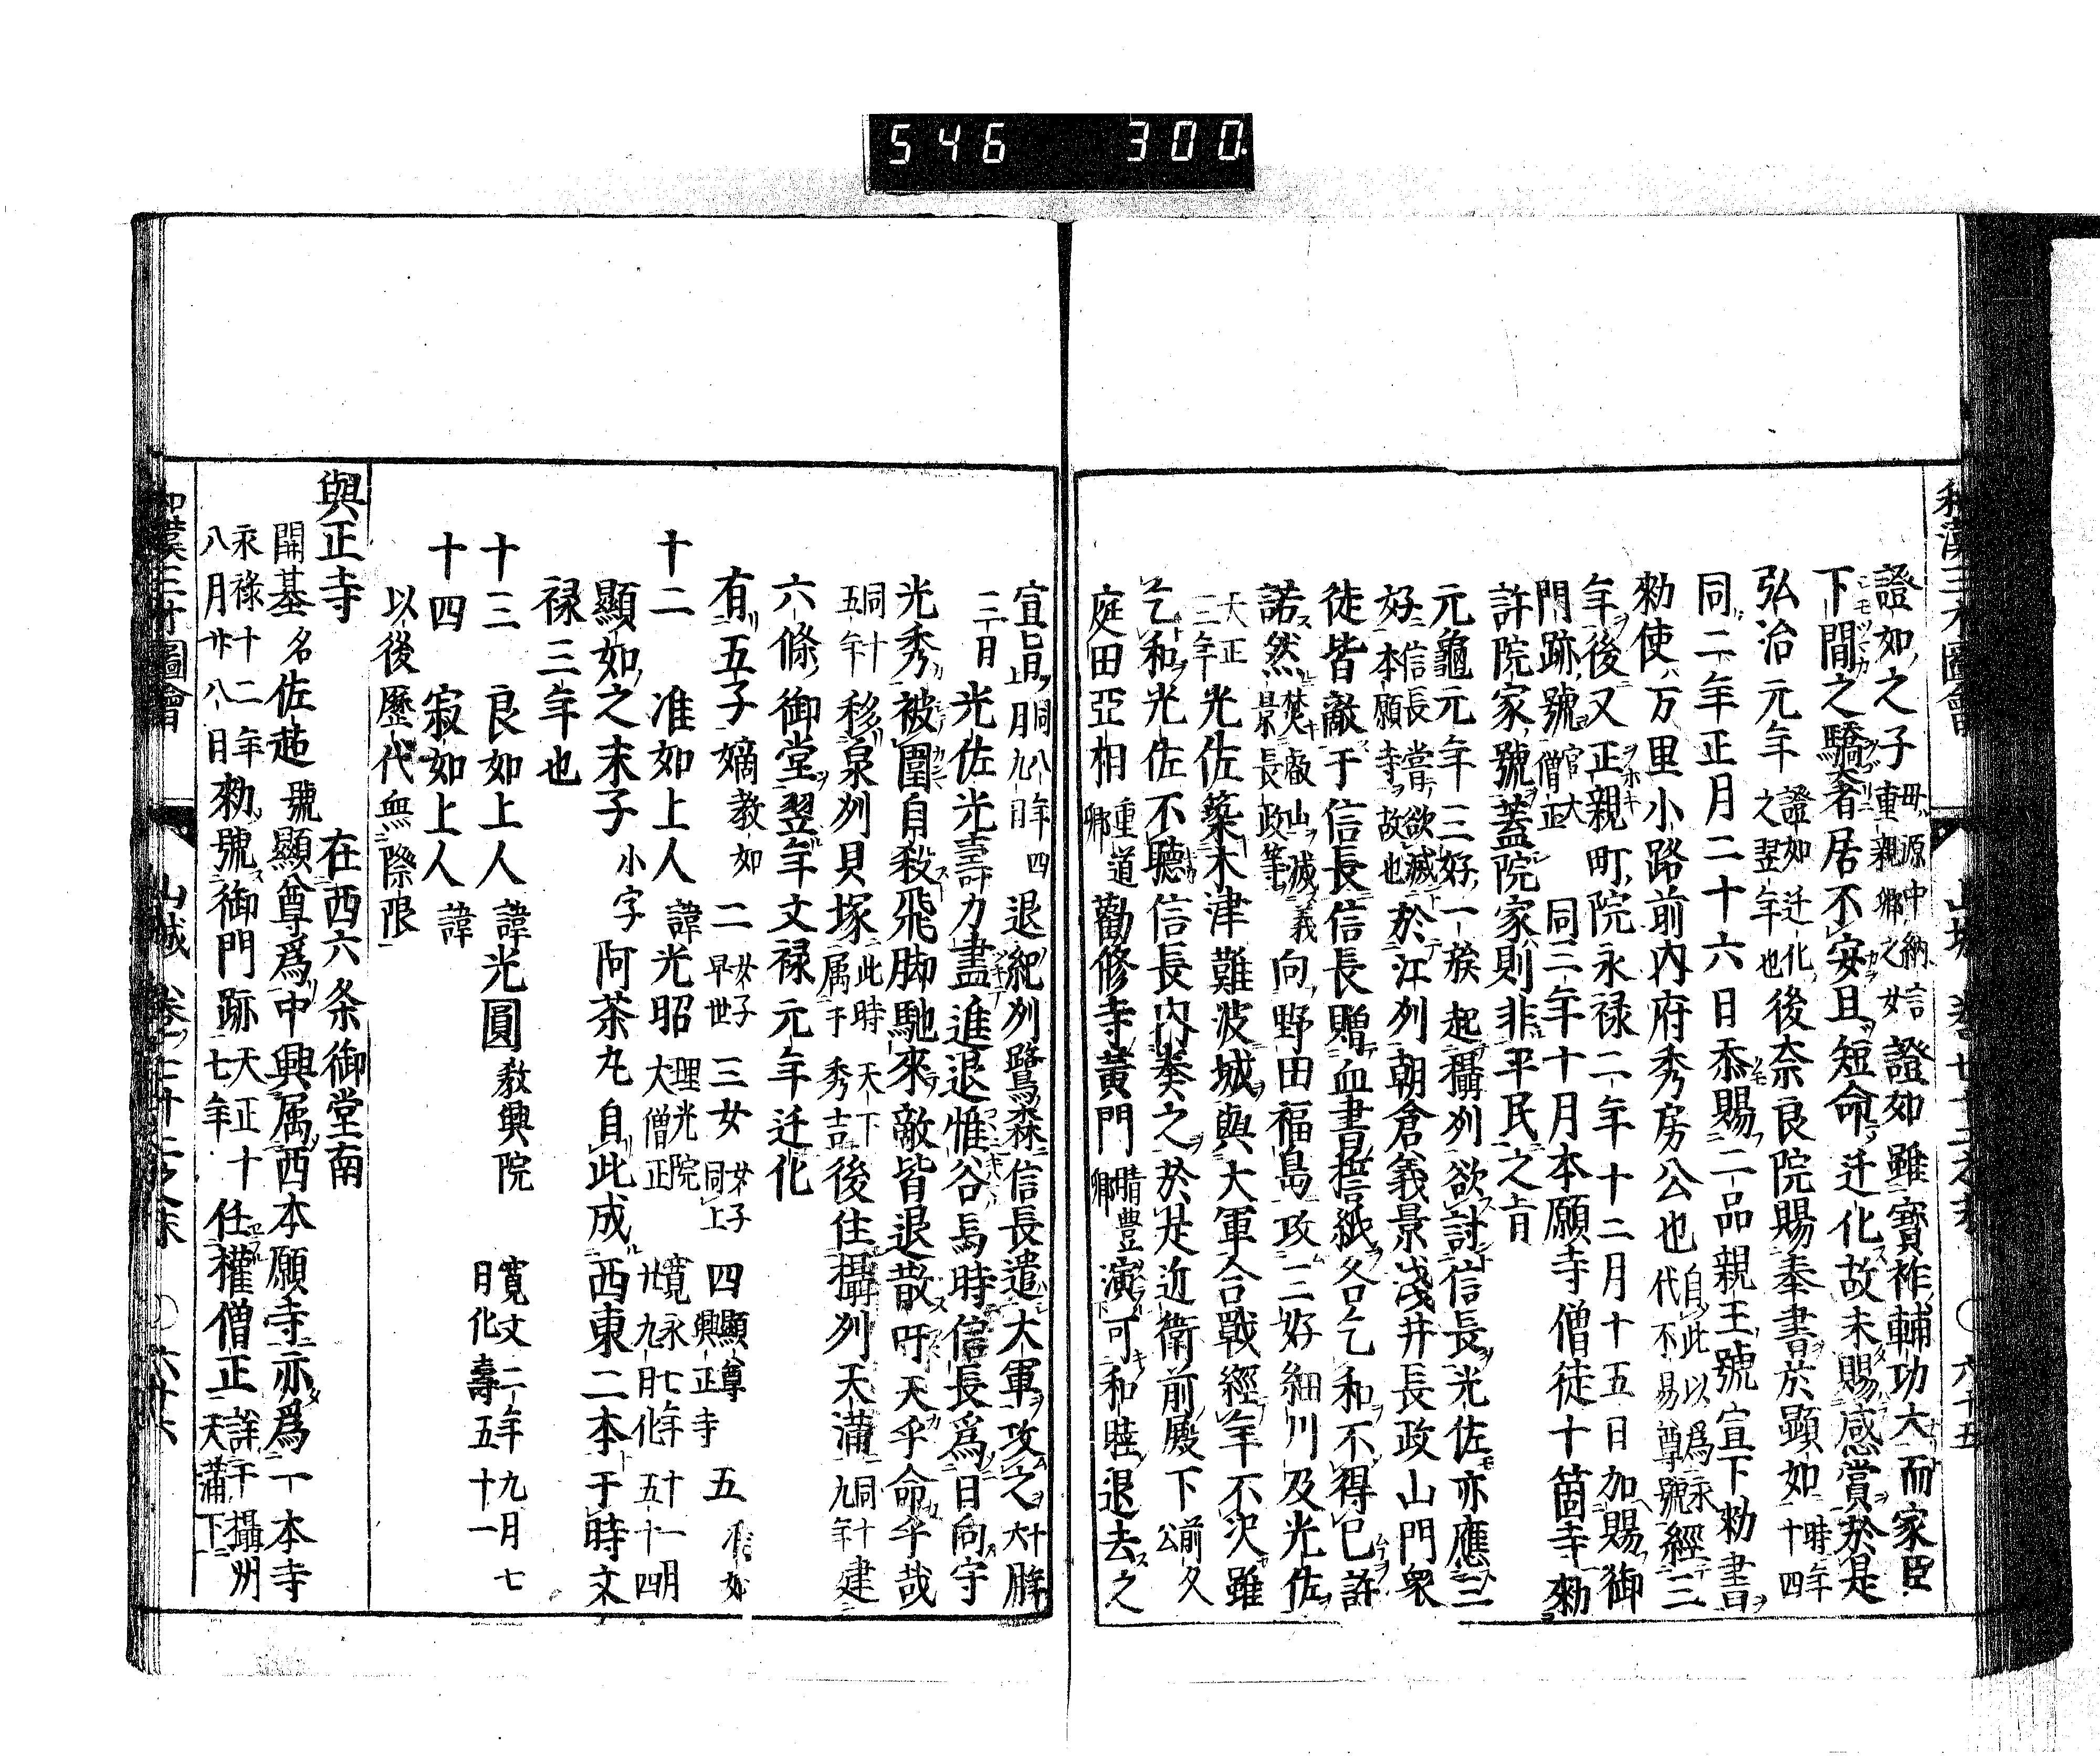 546 300.
證如之子 母源中納言重親卿之女 證如雖寶祚輔功大而家臣
下間之驕奢居不安且短命迁化故未賜感賞於是
弘治元年 證如迁化之翌年也 後奈良院賜奉書於顯如 時年十四
同二年正月二十六日忝賜二品親王號宣下勑書
勑使万里小路前内府秀房公也 自此以爲永代不易尊號 經三
年後又正親町院永禄二年十二月十五日加賜御
門跡號 官大僧正 同三年十月本願寺僧徒十箇寺勑
許院家號蓋院家則非平民之㫖
元龜元年三好一族起攝州欲討信長光佐亦應三
好 信長嘗欲滅本願寺故也 於江州朝倉義景淺井長政山門衆
徒皆敵于信長信長贈血書誓紙各乞和不得已許
諾然 焚叡山滅義景長政等 向野田福島攻三好細川及光佐
天正三年 光佐築木津難波城與大軍合戰經年不决雖
乞和光佐不聽信長内奏之於是近衛前殿下 前久公
庭田亞相 重道卿 勸修寺黄門 晴豊卿 演可和睦退去之
宣㫖 同八年四月上九日 退紀州鷺森信長遣大軍攻之 十年六月
三日 光佐光壽力盡進退惟谷焉時信長爲日向守
光秀被圍自殺飛脚馳來敵皆退散吁天乎命乎哉
同十五年 移泉州貝塚 此時天下属于秀吉 後住攝州天滿 同十九年 建
六條御堂翌年文禄元年迁化
有五子嫡教如 二 女子早世 三女 女子同上 四 顯尊興正寺 五 准如
十二 准如上人 諱光昭 理光院大僧正 寛永七年十一月廿九日化五十四
顯如之末子 小字 阿茶丸自此成西東二本于時文
禄三年也
十三 良如上人 諱光圓 教興院 寛文二年九月七月化壽五十一
十四 寂如上人 諱
以後歷代無際限
興正寺 在西六条御堂南
開基 名佐超 號顯尊爲中興属西本願寺亦爲一本寺
永祿十二年八月廿八日 勑號御門跡 天正十七年 任權僧正 詳于攝州天滿下
和漢三才圖會 山城 卷七十二之末 ○六十五